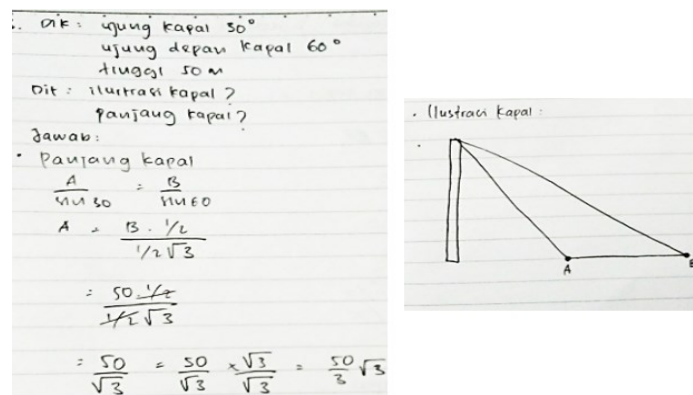 . Dik : ujung kapal 30°
ujung depan kapal 60°
tinggi 50 m
Dit : ilustrasi kapal ?
panjang kapal ?
Jawab :
• Panjang kapal
A / sin 30 = B / sin 60
A = B . 1/2 / 1/2 √3
= 50 . 1/2 / 1/2 √3
= 50 / √3 = 50 / √3 × √3 / √3 = 50 / 3 √3
. Ilustrasi kapal :
A
B